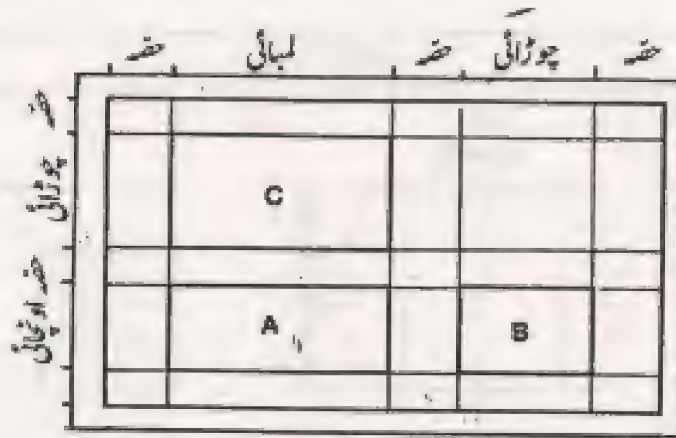 حصہ لمبائی حصہ چوڑائی حصہ
حصہ
چوڑائی
حصہ
اونچائی
C
A
B